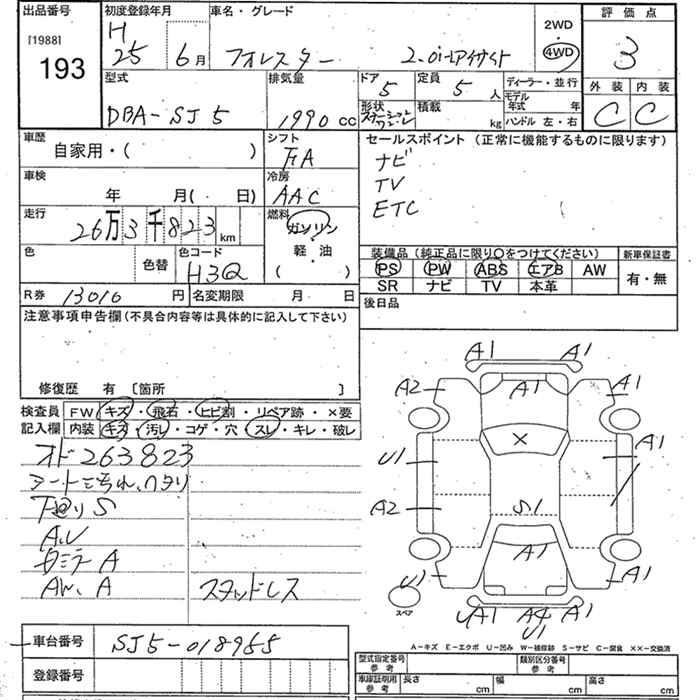 出品番号
[1988]
193
初度登録年月
H
25 6月
車名・グレード
フォレスター 2.0i-Lアイサイト
2WD
4WD
評価点
3
外装 内装
C C
型式
DBA-SJ5
排気量
1990 cc
ドア
5
形状
ステーションワゴン
定員
5 人
積載
kg
ディーラー・並行
モデル年式 年
ハンドル 左・右
車歴
自家用・( )
シフト
FA
セールスポイント (正常に機能するものに限ります)
ナビ
TV
ETC
車検
年 月( 日)
冷房
AAC
走行
26万3千823 km
燃料
ガソリン
軽・油
( )
色
色替
色コード
H3Q
装備品 (純正品に限り○をつけてください)
PS PW ABS エアB AW
SR ナビ TV 本革
新車保証書
有・無
R券 13010 円 名変期限 月 日
後日品
注意事項申告欄 (不具合内容等は具体的に記入して下さい)
修復歴 有 〔箇所 〕
検査員記入欄
FW キズ・飛石・ヒビ割・リペア跡・×要
内装 キズ・汚レ・コゲ・穴・スレ・キレ・破レ
オド263823
シート三汚れ、ヘタリ
下廻りS
AW. A
スタッドレス
A1 A1
A2 A1 A1
U1 × A1
A2 S1
A1
U1 A1
スペア
UA1 A4 A1
U1
A-キズ E-エクボ U-凹み W-補修跡 S-サビ C-腐食 ××-交換済
車台番号 SJ5-018955
登録番号
型式指定番号 参考
類別区分番号 参考
車庫証明用 参考 長さ cm 幅 cm 高さ cm